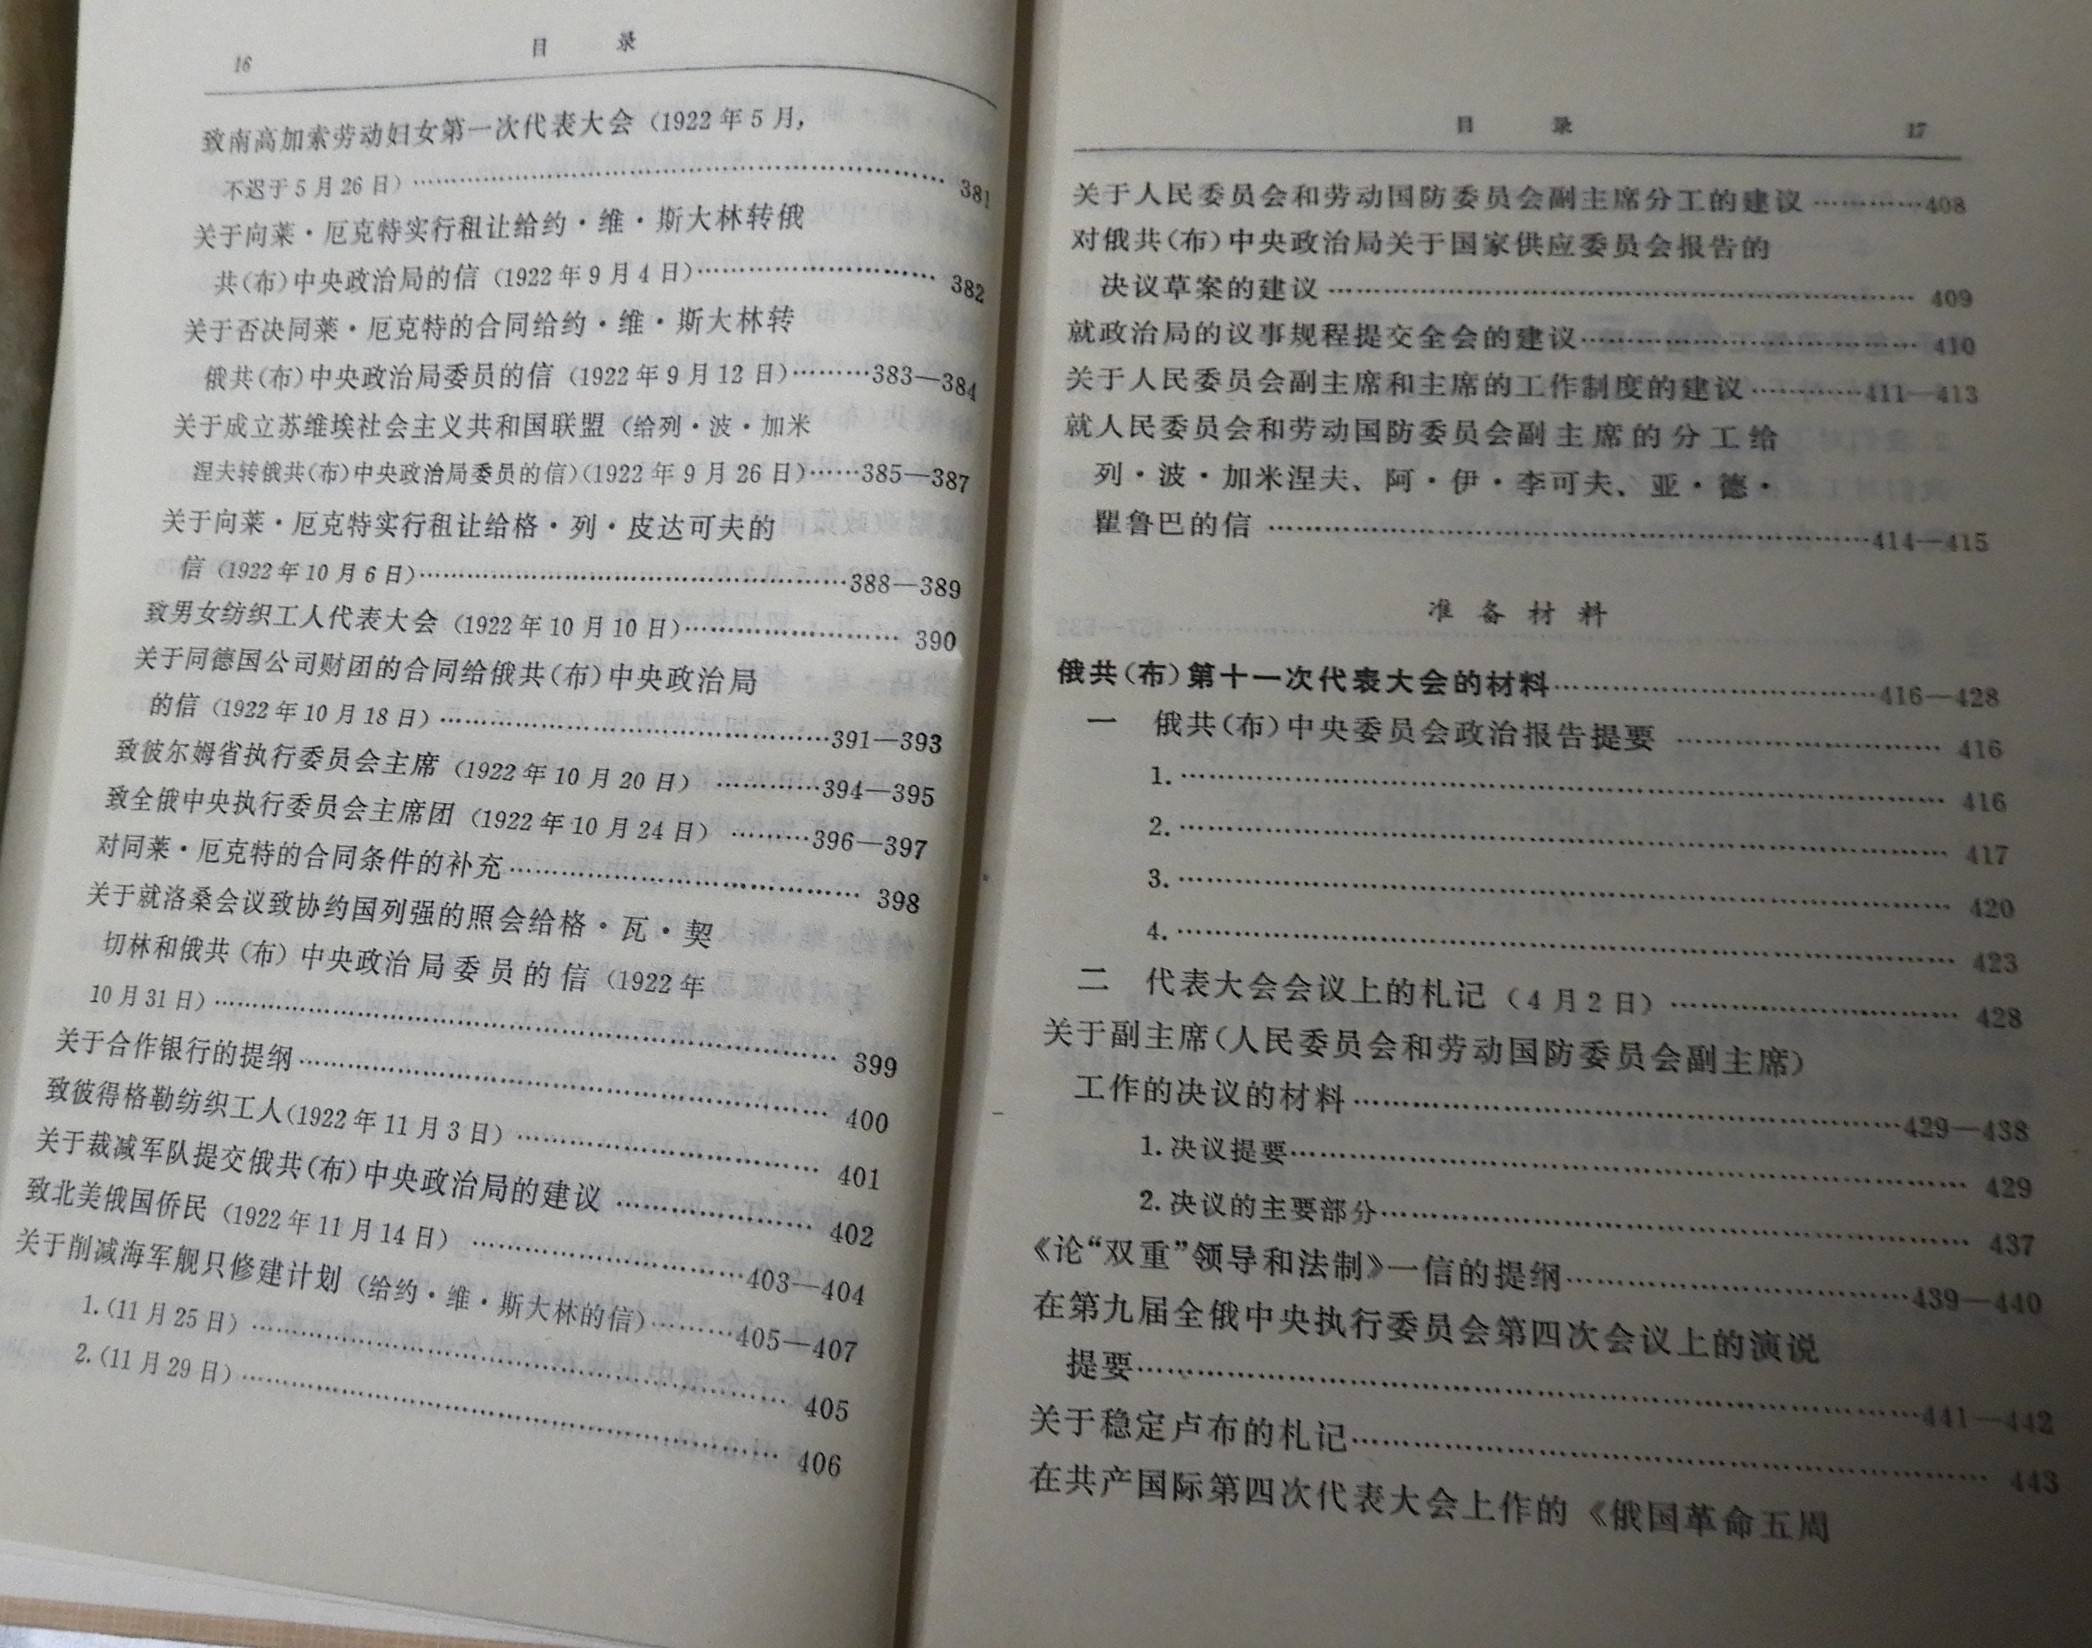 16
目 录
致南高加索劳动妇女第一次代表大会（1922年5月，
不迟于5月26日）…………………………………………………… 381
关于向莱·厄克特实行租让给约·维·斯大林转俄
共（布）中央政治局的信（1922年9月4日）……………………… 382
关于否决同莱·厄克特的合同给约·维·斯大林转
俄共（布）中央政治局委员的信（1922年9月12日）………383—384
关于成立苏维埃社会主义共和国联盟（给列·波·加米
涅夫转俄共（布）中央政治局委员的信）（1922年9月26日）……385—387
关于向莱·厄克特实行租让给格·列·皮达可夫的
信（1922年10月6日）……………………………………………388—389
致男女纺织工人代表大会（1922年10月10日）…………………… 390
关于同德国公司财团的合同给俄共（布）中央政治局
的信（1922年10月18日）………………………………………391—393
致彼尔姆省执行委员会主席（1922年10月20日）…………394—395
致全俄中央执行委员会主席团（1922年10月24日）………396—397
对同莱·厄克特的合同条件的补充………………………………… 398
关于就洛桑会议致协约国列强的照会给格·瓦·契
切林和俄共（布）中央政治局委员的信（1922年
10月31日）………………………………………………………… 399
关于合作银行的提纲………………………………………………… 400
致彼得格勒纺织工人（1922年11月3日）………………………… 401
关于裁减军队提交俄共（布）中央政治局的建议………………… 402
致北美俄国侨民（1922年11月14日）…………………………403—404
关于削减海军舰只修建计划（给约·维·斯大林的信）………405—407
1.（11月25日）…………………………………………………… 405
2.（11月29日）…………………………………………………… 406
目 录
17
关于人民委员会和劳动国防委员会副主席分工的建议…………408
对俄共（布）中央政治局关于国家供应委员会报告的
决议草案的建议…………………………………………………… 409
就政治局的议事规程提交全会的建议……………………………… 410
关于人民委员会副主席和主席的工作制度的建议…………411—413
就人民委员会和劳动国防委员会副主席的分工给
列·波·加米涅夫、阿·伊·李可夫、亚·德·
瞿鲁巴的信…………………………………………………………414—415
准备材料
俄共（布）第十一次代表大会的材料………………………………416—428
一 俄共（布）中央委员会政治报告提要………………………… 416
1.……………………………………………………………………… 416
2.……………………………………………………………………… 417
3.……………………………………………………………………… 420
4.……………………………………………………………………… 423
二 代表大会会议上的札记（4月2日）………………………… 428
关于副主席（人民委员会和劳动国防委员会副主席）
工作的决议的材料…………………………………………………429—438
1.决议提要…………………………………………………………… 429
2.决议的主要部分…………………………………………………… 437
《论“双重”领导和法制》一信的提纲………………………………439—440
在第九届全俄中央执行委员会第四次会议上的演说
提要……………………………………………………………………441—442
关于稳定卢布的札记………………………………………………… 443
在共产国际第四次代表大会上作的《俄国革命五周